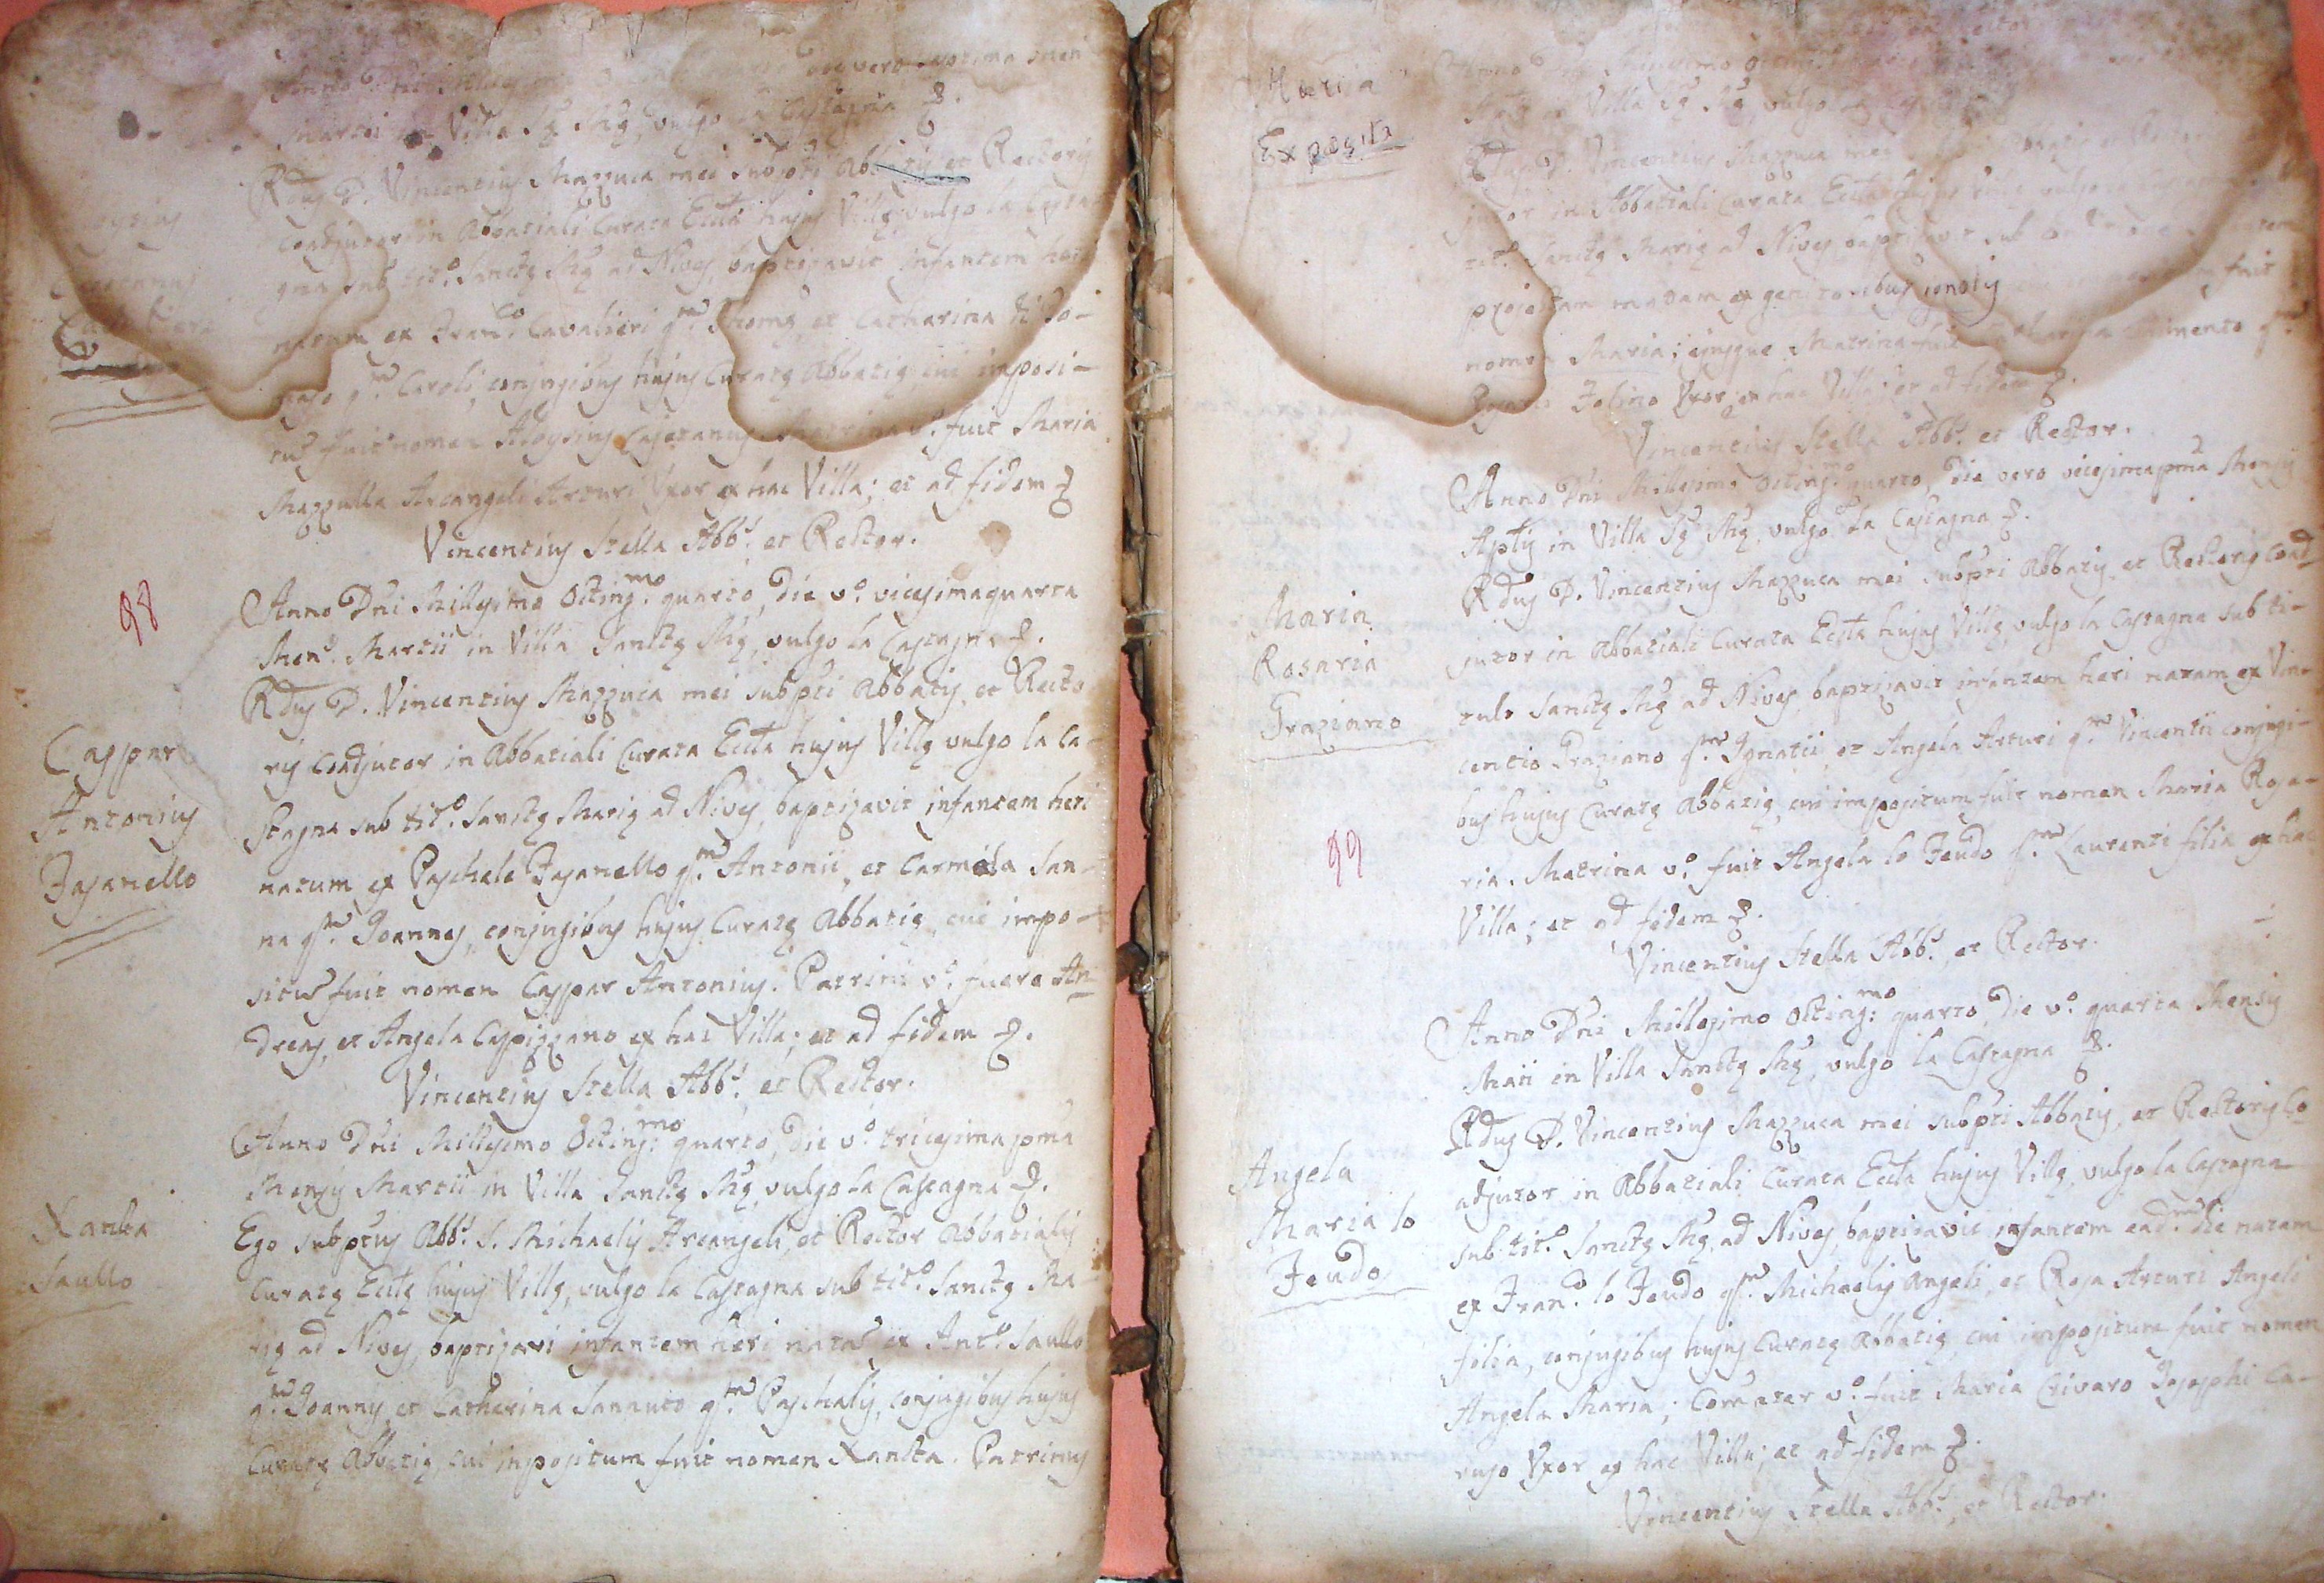 Anno Dni vero septima men
Martii in Villa Sę Mę, vulgo la Castagna &.
Rdus D. Vincentius Mazzuca mei subpti Abbatis et Rectoris
Coadjutor in Abbatiali Curata Eccla hujus Villę vulgo la Casta
gna sub tit.o Sanctę Mę ad Nives, baptizavit infantem heri
natum ex Fran.co Cavalieri qm. Thomę, et Catharina
qm. Caroli, conjugibus hujus Curatę Abbatię cui imposi-
tũ fuit nomen Aloysius Cajetanus. Matrina v.o fuit Maria
Mazzulla Arcangeli Arturi Uxor ex hac Villa; et ad fidem &
Vincentius Stella Abb.s et Rector.
98
Caspar
Antonius
Fasanello
Anno Dni Millesimo Octing.mo quarto, die v.o vicesimaquarta
Mens. Martii in Villa Sanctę Mę, vulgo la Castagna &.
Rdus D. Vincentius Mazzuca mei subpti Abbatis, et Recto
ris Coadjutor in Abbatiali Curata Eccla hujus Villę vulgo la Ca-
stagna sub tit.o Sanctę Marię ad Nives, baptizavit infantem heri
natum ex Paschale Fasanello qm. Antonii, et Carmela San-
na qm. Joannes, conjugibus hujus Curatę Abbatię, cui impo-
situs fuit nomen Caspar Antonius. Patrini v.o fuere An
dreas, et Angela Caspizzano ex hac Villa; et ad fidem &.
Vincentius Stella Abb.s et Rector.
Xanta
Saullo
Anno Dni Millesimo Octing.mo quarto, die v.o tricesimapma
Mensis Martii in Villa Sanctę Mę, vulgo la Castagna &.
Ego subptus Abb.s S. Michaelis Arcangeli, et Rector Abbatialis
Curatę Ecclę hujus Villę, vulgo la Castagna sub tit.o Sanctę Ma-
rię ad Nives, baptizavi infantem heri natã ex Ant.o Saullo
qm. Joannis, et Catherina Sannuto qm. Paschalis, conjugibus hujus
Curatę Abbatię, cui impositum fuit nomen Xanta. Patrinus
Maria
Exposita
Anno
in Villa Sę Mę, vulgo
D. Vincentius Mazzuca mei
jutor in Abbatiali Curata Eccla hujus Villę vulgo
tit.o Sanctę Marię ad Nives, baptizavit sub
projectam natam ex genitoribus ignotis fuit
nomen Maria; ejusque Matrina fuit qm.
Folino Uxor ex hac Villa; et ad fidem &.
Vincentius Stella Abb.s et Rector.
Maria
Rosaria
Graziano
99
Anno Dni Millesimo Octing.mo quarto, die vero vicesimapma Mensis
Aplis in Villa Sę Mę, vulgo la Castagna &.
Rdus D. Vincentius Mazzuca mei subpti Abbatis, et Rectoris Coad
jutor in Abbatiali Curata Eccla hujus Villę, vulgo la Castagna sub ti-
tulo Sanctę Mę ad Nives, baptizavit infantem heri natam ex Vin-
centio Graziano qm. Ignatii, et Angela Arturi qm. Vincentii conjugi-
bus hujus Curatę Abbatię, cui impositum fuit nomen Maria Rosa-
ria. Matrina v.o fuit Angela lo Feudo qm. Laurenti filia ex hac
Villa; et ad fidem &.
Vincentius Stella Abb.s, et Rector.
Angela
Maria lo
Feudo
Anno Dni Millesimo Octing.mo quarto, die v.o quarta Mensis
Maii in Villa Sanctę Mę, vulgo la Castagna &.
Rdus D. Vincentius Mazzuca mei subpti Abbatis, et Rectoris Co
adjutor in Abbatiali Curata Eccla hujus Villę, vulgo la Castagna
sub tit.o Sanctę Mę, ad Nives, baptizavit infantem ead.m die natam
ex Fran.co lo Feudo qm. Michaelis Angeli, et Rosa Arturi Angeli
filia, conjugibus hujus Curatę Abbatię, cui impositum fuit nomen
Angela Maria; Comater v.o fuit Maria Crivaro Josephi Ca-
ruso Uxor ex hac Villa; et ad fidem &.
Vincentius Stella Abb.s, et Rector.